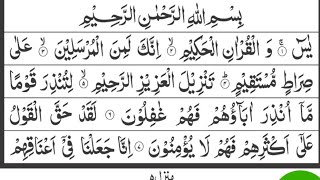 بِسْمِ اللهِ الرَّحْمٰنِ الرَّحِيْمِ
يٰسٓ ۚ ۱ وَ الْقُرْاٰنِ الْحَكِيْمِ ۙ ۲ اِنَّكَ لَمِنَ الْمُرْسَلِيْنَ ۙ ۳ عَلٰى
صِرَاطٍ مُّسْتَقِيْمٍ ؕ ۴ تَنْزِيْلَ الْعَزِيْزِ الرَّحِيْمِ ۙ ۵ لِتُنْذِرَ قَوْمًا
مَّاۤ اُنْذِرَ اٰبَآؤُهُمْ فَهُمْ غٰفِلُوْنَ ۶ لَقَدْ حَقَّ الْقَوْلُ
عَلٰۤى اَكْثَرِهِمْ فَهُمْ لَا يُؤْمِنُوْنَ ۷ اِنَّا جَعَلْنَا فِيْۤ اَعْنَاقِهِمْ